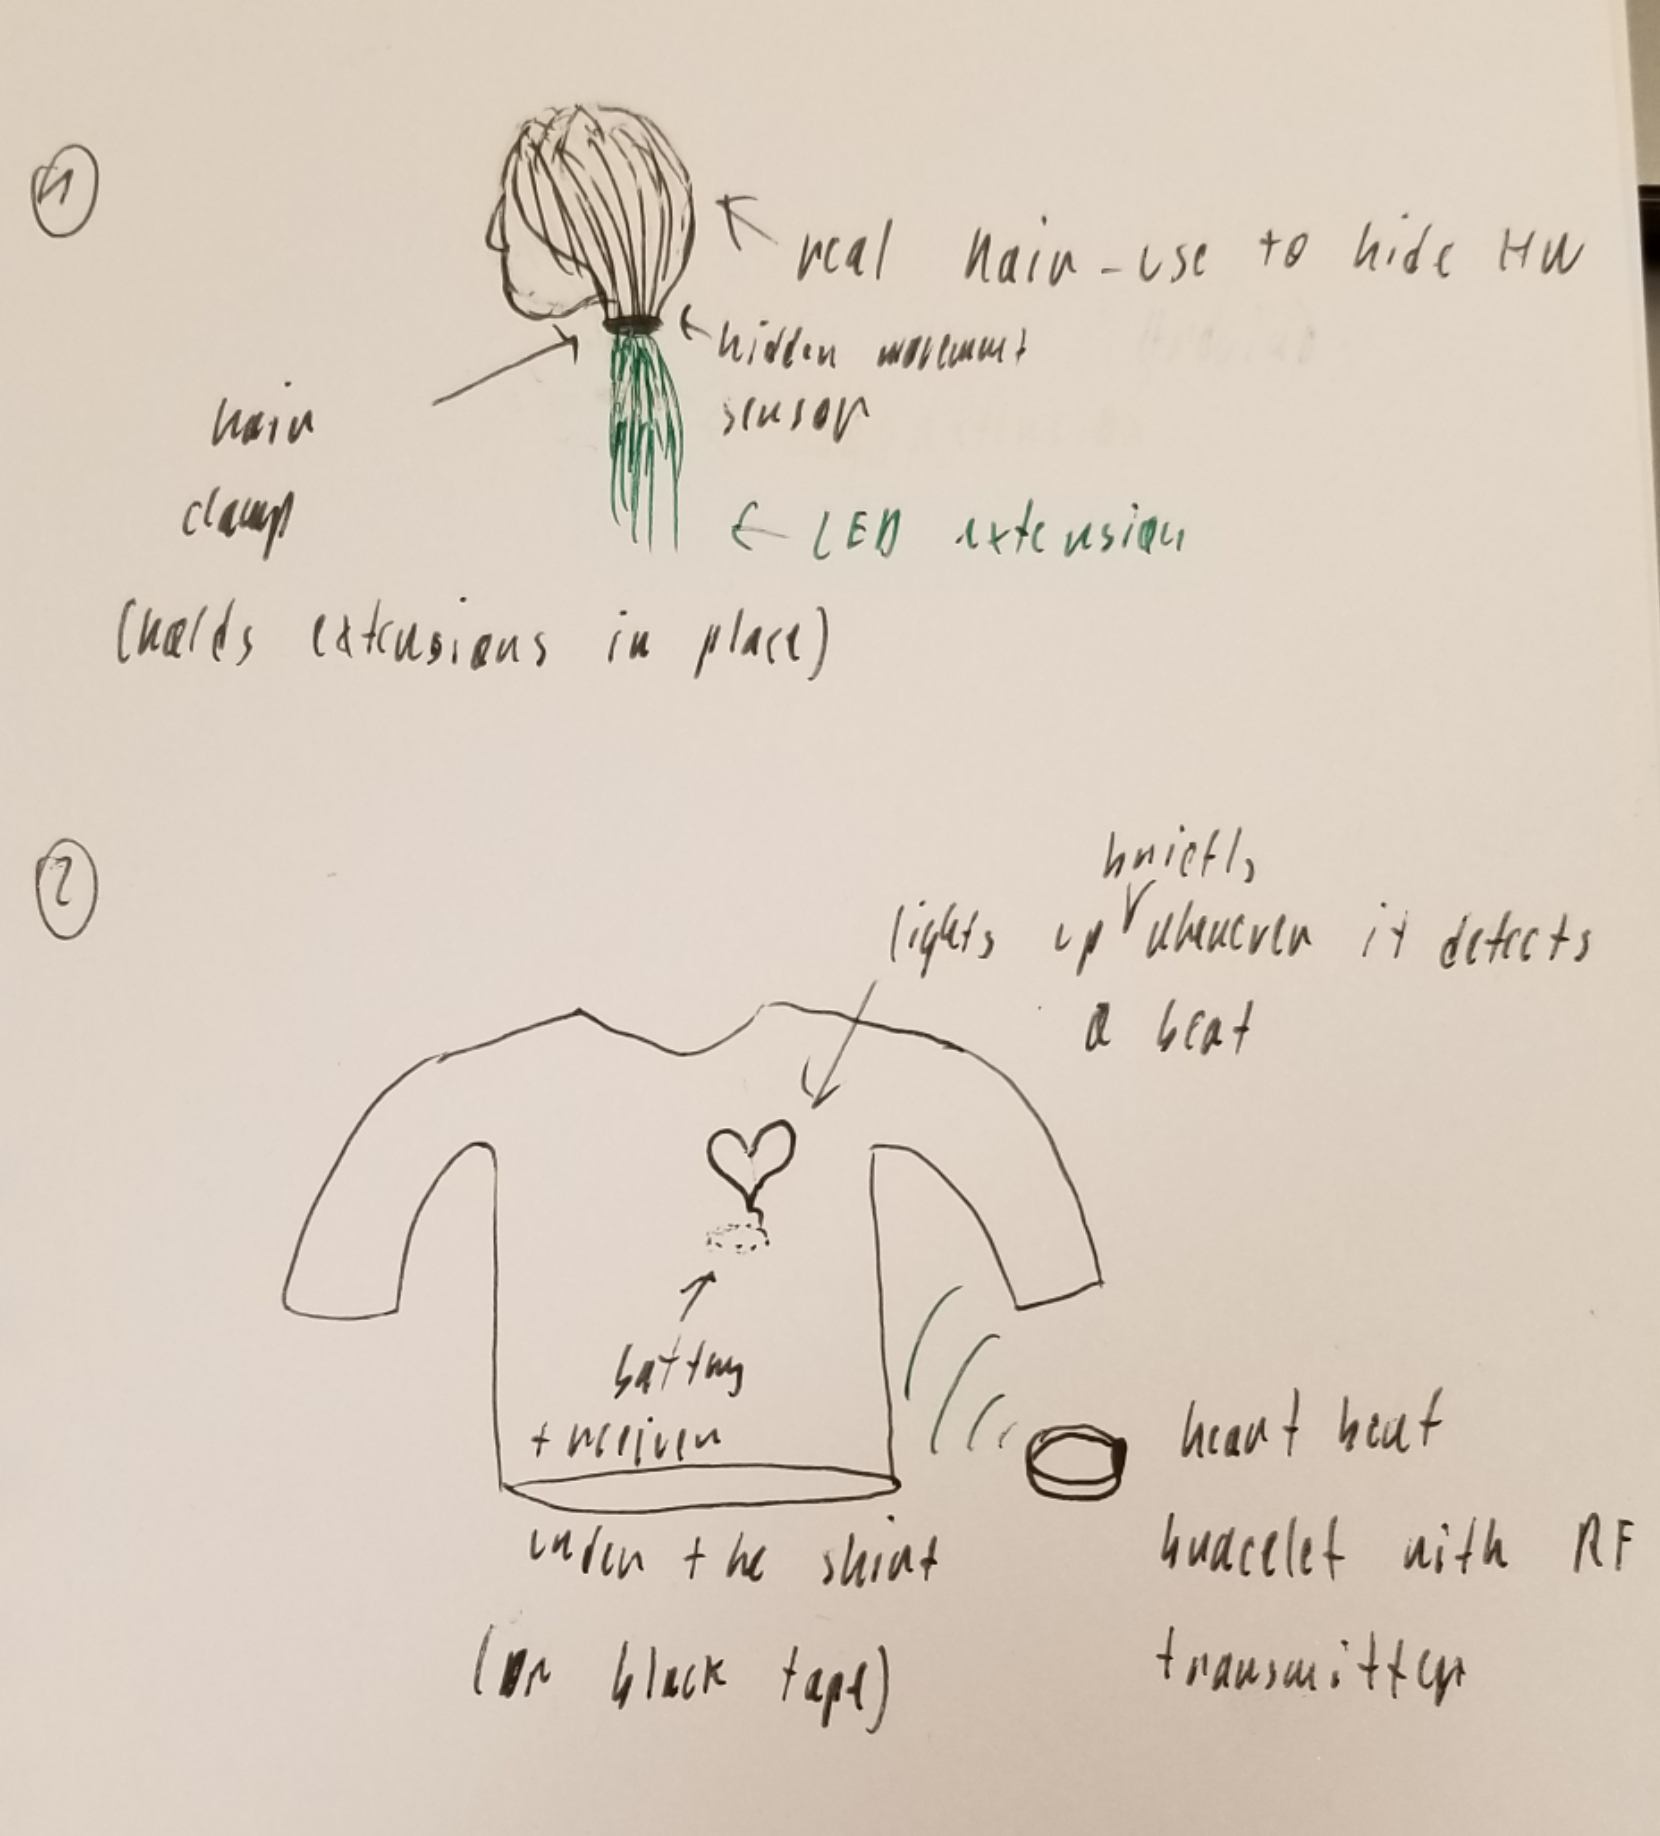 1
real hair - use to hide HW
hidden movement
sensor
hair
clamp
LED extension
(holds extensions in place)
2
briefly
lights up whenever it detects
a beat
battery
+ receiver
under the shirt
(or black tape)
heart beat
bracelet with RF
transmitter